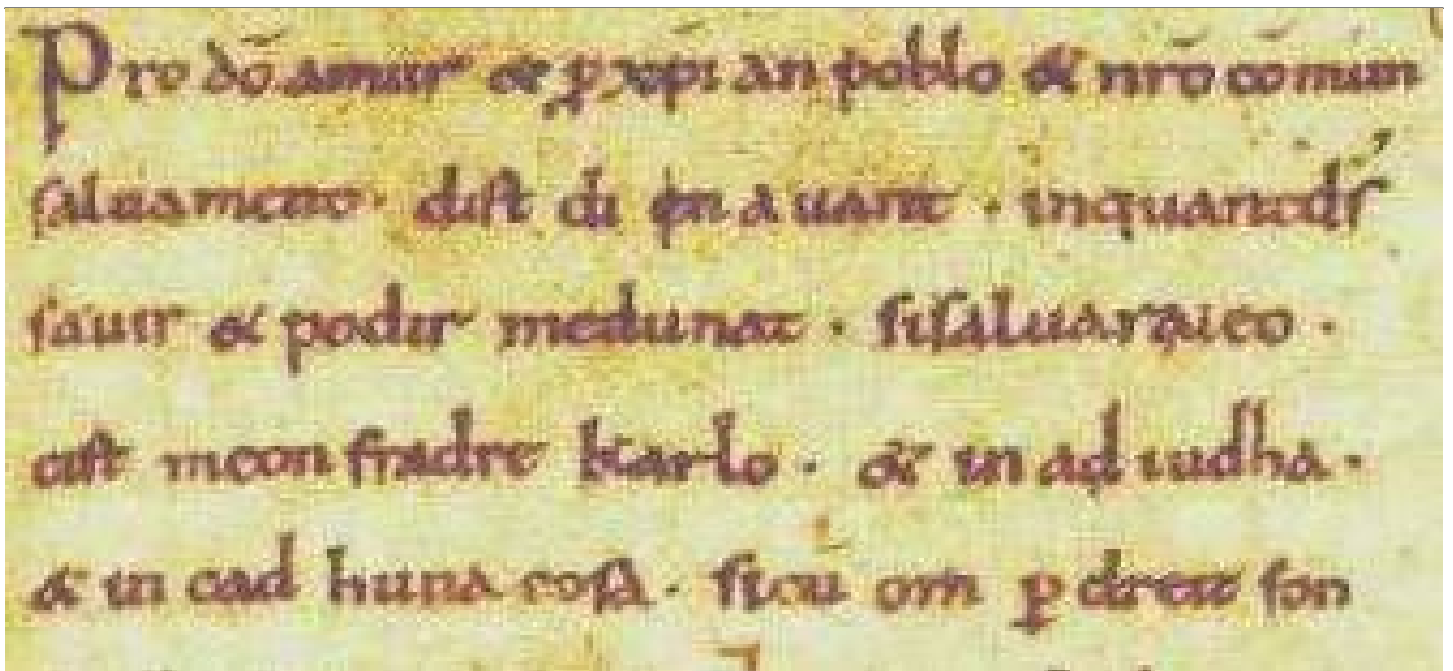 Pro dō amur & ꝑ xp̄ian poblo & nr̄o cōmun
saluament. dist di en auant. inquantd̄s
sauir & podir medunat. sisaluaraieo.
cist meon fradre karlo. & in ad iudha.
& in cad huna cosa. sicū om ꝑ dreit son